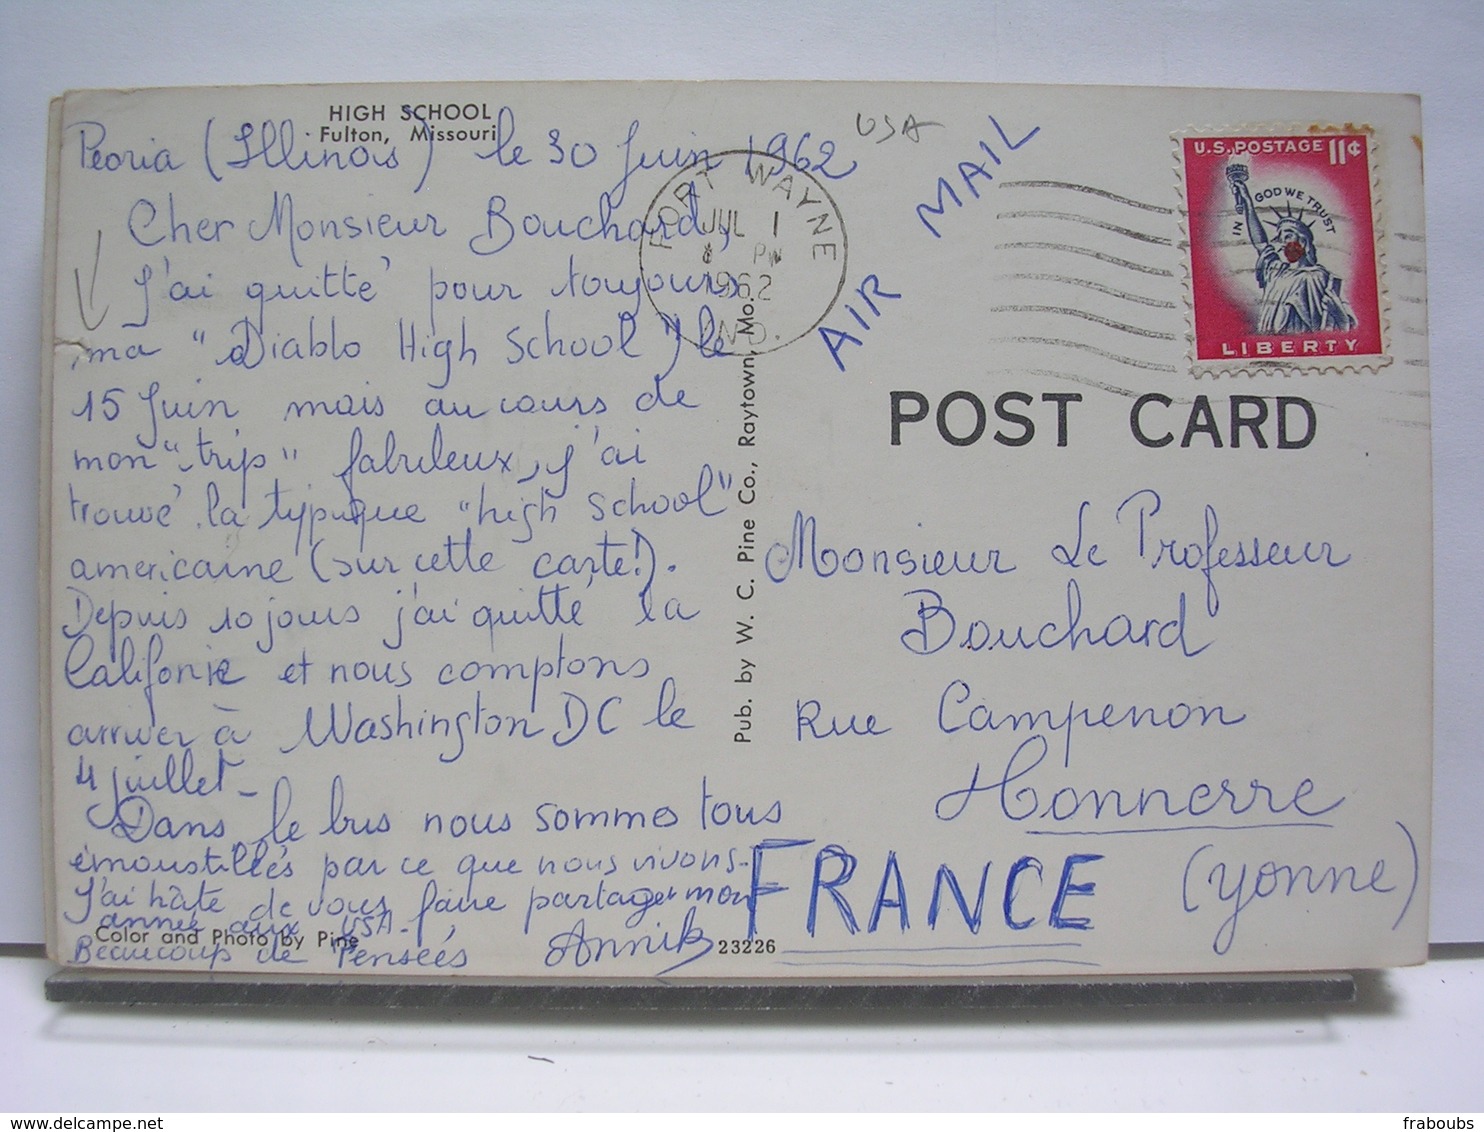 HIGH SCHOOL
Fulton, Missouri
Peoria (Illinois) le 30 Juin 1962
USA
Cher Monsieur Bouchard,
J'ai quitté pour toujours
ma "Diablo High School" le
15 Juin mais au cours de
mon "trip" fabuleux, j'ai
trouvé la typique "high school"
americaine (sur cette carte!).
Depuis 10 jours j'ai quitté la
Califonie et nous comptons
arriver à Washington DC le
4 juillet -
Dans le bus nous sommes tous
émoustillés par ce que nous vivons -
J'ai hâte de vous faire partager mon
année aux USA.
Beaucoup de Pensées Annik
Color and Photo by Pine
23226
Pub. by W. C. Pine Co., Raytown, Mo.
FORT WAYNE
JUL 1
PM
1962
IND.
AIR MAIL
U.S. POSTAGE 11¢
IN GOD WE TRUST
LIBERTY
POST CARD
Monsieur Le Professeur
Bouchard
Rue Campenon
Honnerre
(Yonne)
FRANCE
fraboubs